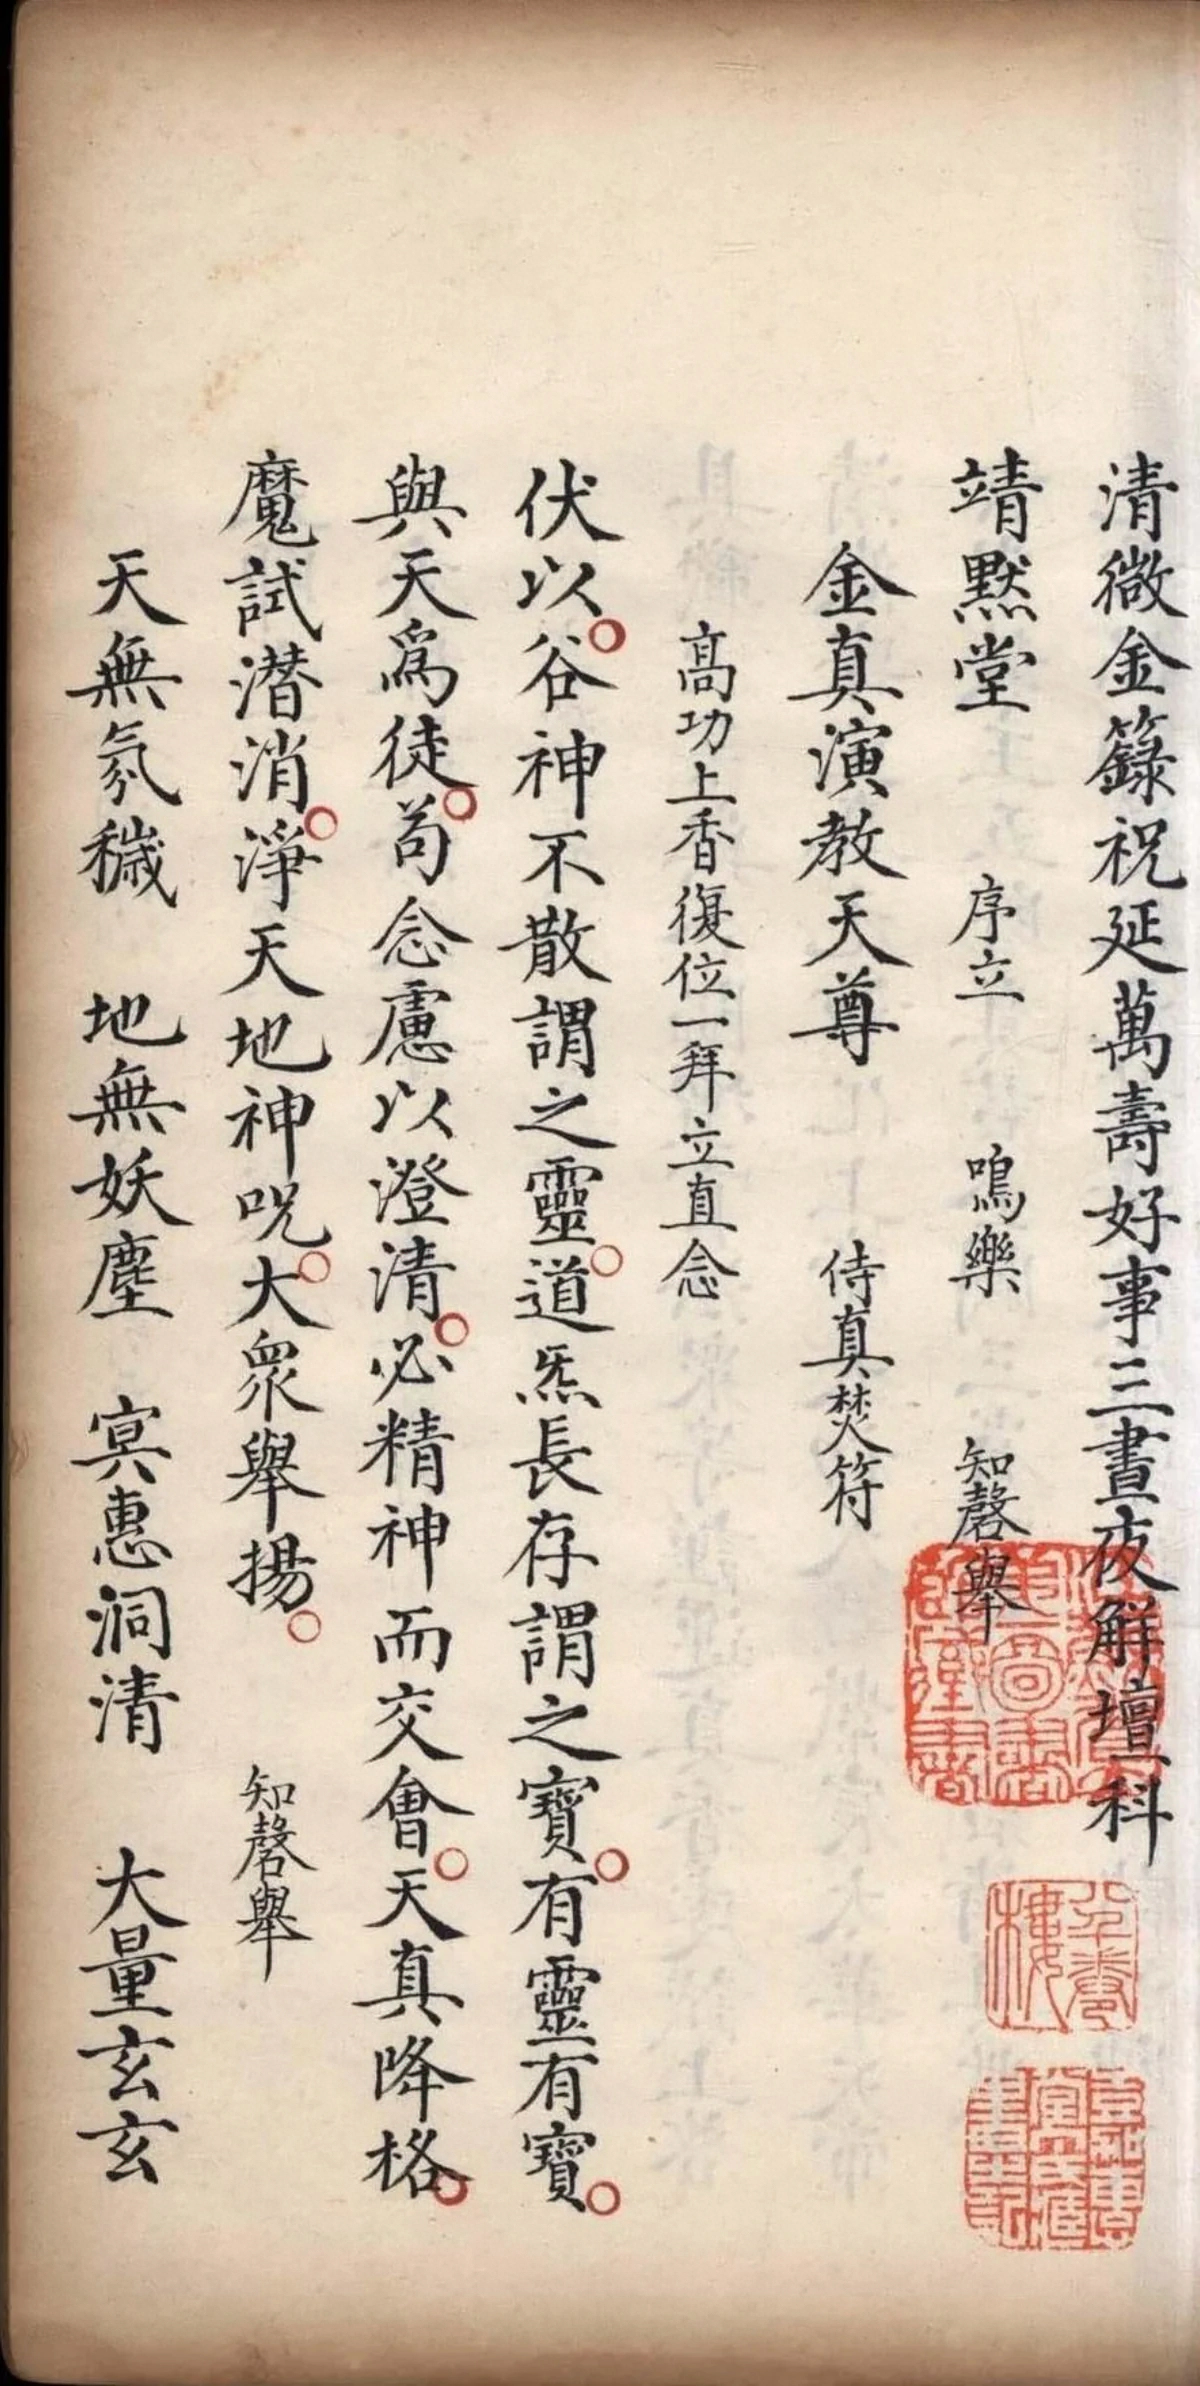 清微金籙祝延萬壽好事三晝夜解壇科
靖黙堂　序立　鳴樂　知磬舉
金真演教天尊　侍真焚符
高功上香復位一拜立直念
伏以谷神不散謂之靈道炁長存謂之寶有靈有寶
與天爲徒苟念慮以澄清必精神而交會天真降格
魔試潛消淨天地神呪大眾舉揚　知磬舉
天無氛穢　地無妖塵　冥惠洞清　大量玄玄